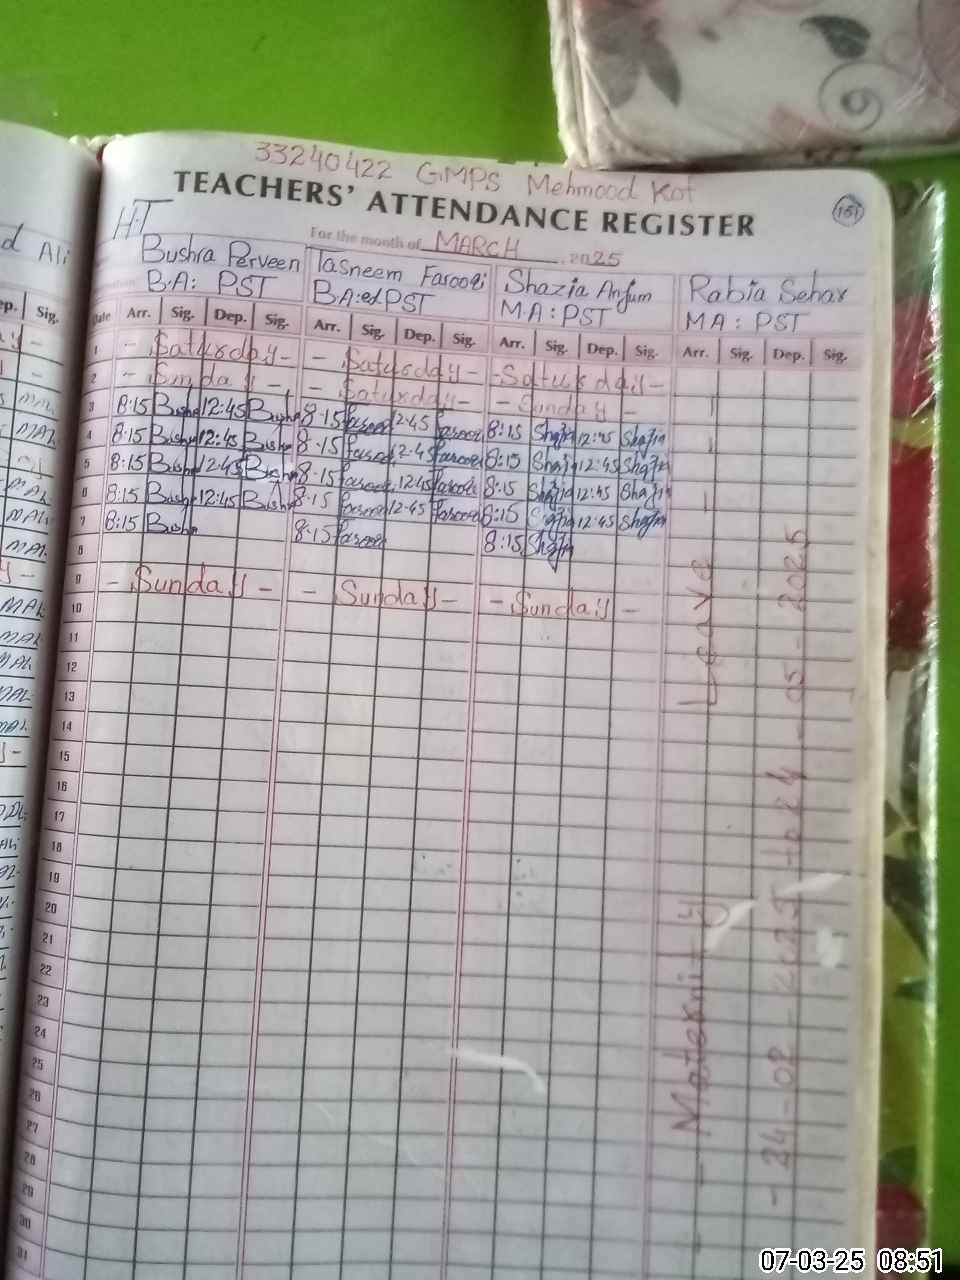 33240422 GMPS Mehmood Kot
TEACHERS' ATTENDANCE REGISTER
151
For the month of MARCH 2025
H.T
Bushra Perveen Tasneem Farooqi Shazia Anjum Rabia Sehar
B.A: PST B.A:ed PST M.A: PST MA: PST
Date Arr. Sig. Dep. Sig. Arr. Sig. Dep. Sig. Arr. Sig. Dep. Sig. Arr. Sig. Dep. Sig.
1 - Saturday - - Saturday - - Saturday -
2 - Sunday - - Saturday - - Sunday -
3 8:15 Bushra 12:45 Bushra 8-15 farooqi 12-45 farooqi 8:15 Shazia 12:45 Shazia
4 8:15 Bushra 12:45 Bushra 8-15 farooqi 12-45 farooqi 8:15 Shazia 12:45 Shazia
5 8:15 Bushra 12:45 Bushra 8-15 farooqi 12-45 farooqi 8:15 Shazia 12:45 Shazia
6 8:15 Bushra 12:45 Bushra 8-15 farooqi 12-45 farooqi 8:15 Shazia 12:45 Shazia
7 8:15 Bushra 8-15 farooqi 8:15 Shazia
8
9 - Sunday - - Sunday - - Sunday -
10
11
12
13
14
15
16
17
18
19
20
21
22
23
24
25
26
27
28
29
30
31
Maternity Leave
24-02-2025 to 24-05-2025
d Ali
ep. Sig.
07-03-25 08:51